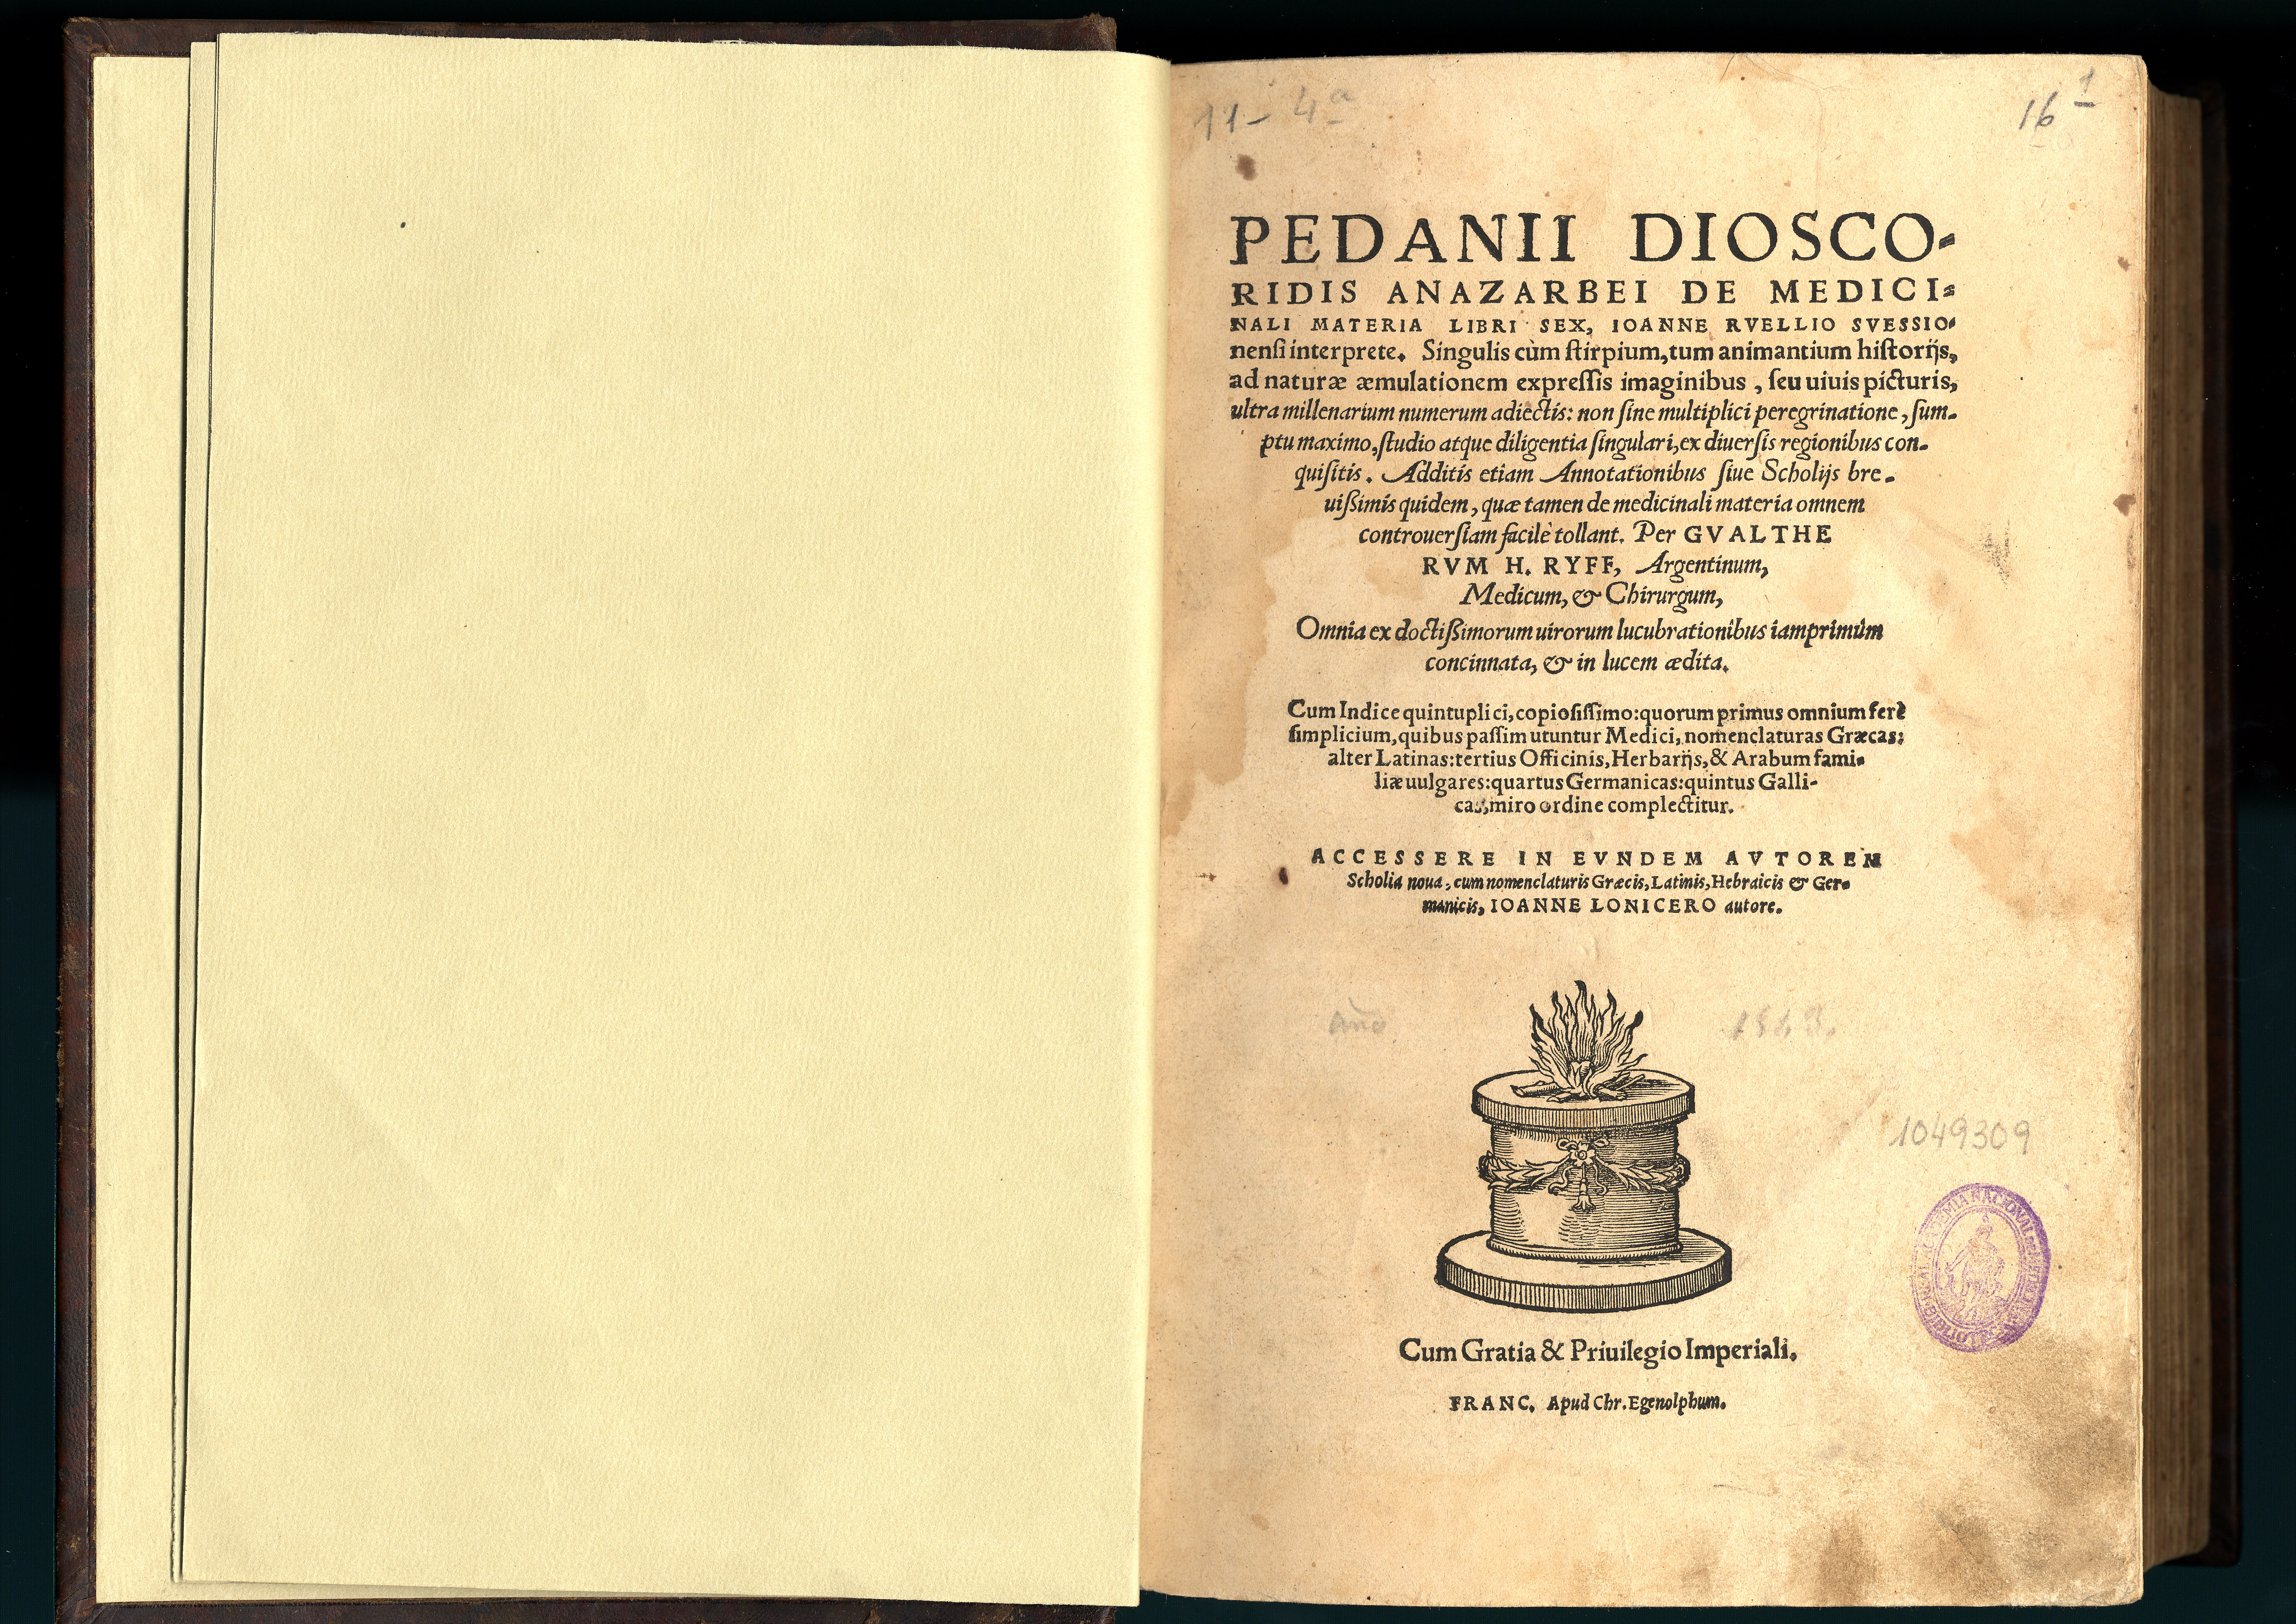 11- 4a
16 1
PEDANII DIOSCO-
RIDIS ANAZARBEI DE MEDICI-
NALI MATERIA LIBRI SEX, IOANNE RVELLIO SVESSIO-
nenſi interprete. Singulis cùm ſtirpium, tum animantium hiſtorijs,
ad naturæ æmulationem expreſſis imaginibus, ſeu uiuis picturis,
ultra millenarium numerum adiectis: non ſine multiplici peregrinatione, ſum-
ptu maximo, ſtudio atque diligentia ſingulari, ex diuerſis regionibus con-
quiſitis. Additis etiam Annotationibus ſiue Scholijs bre-
uißimis quidem, quæ tamen de medicinali materia omnem
controuerſiam facilè tollant. Per GVALTHE
RVM H. RYFF, Argentinum,
Medicum, & Chirurgum,
Omnia ex doctißimorum uirorum lucubrationibus iamprimùm
concinnata, & in lucem ædita.
Cum Indice quintuplici, copioſiſſimo: quorum primus omnium ferè
ſimplicium, quibus paſſim utuntur Medici, nomenclaturas Græcas:
alter Latinas: tertius Officinis, Herbarijs, & Arabum fami-
liæ uulgares: quartus Germanicas: quintus Galli-
cas, miro ordine complectitur.
ACCESSERE IN EVNDEM AVTOREM
Scholia noua, cum nomenclaturis Græcis, Latinis, Hebraicis & Ger-
manicis, IOANNE LONICERO autore.
Año 1543.
1049309
Cum Gratia & Priuilegio Imperiali.
FRANC. Apud Chr. Egenolphum.